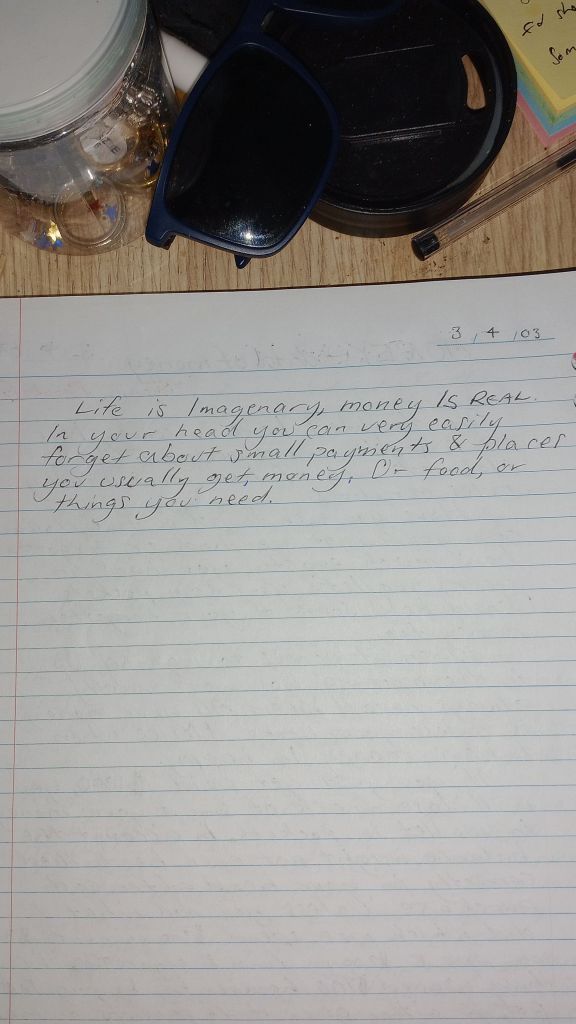 Fd sho
Som
3 / 4 / 03
Life is Imagenary, money IS REAL.
In your head you can very easily
forget about small payments & places
you usually get, money, Or food, or
things you need.